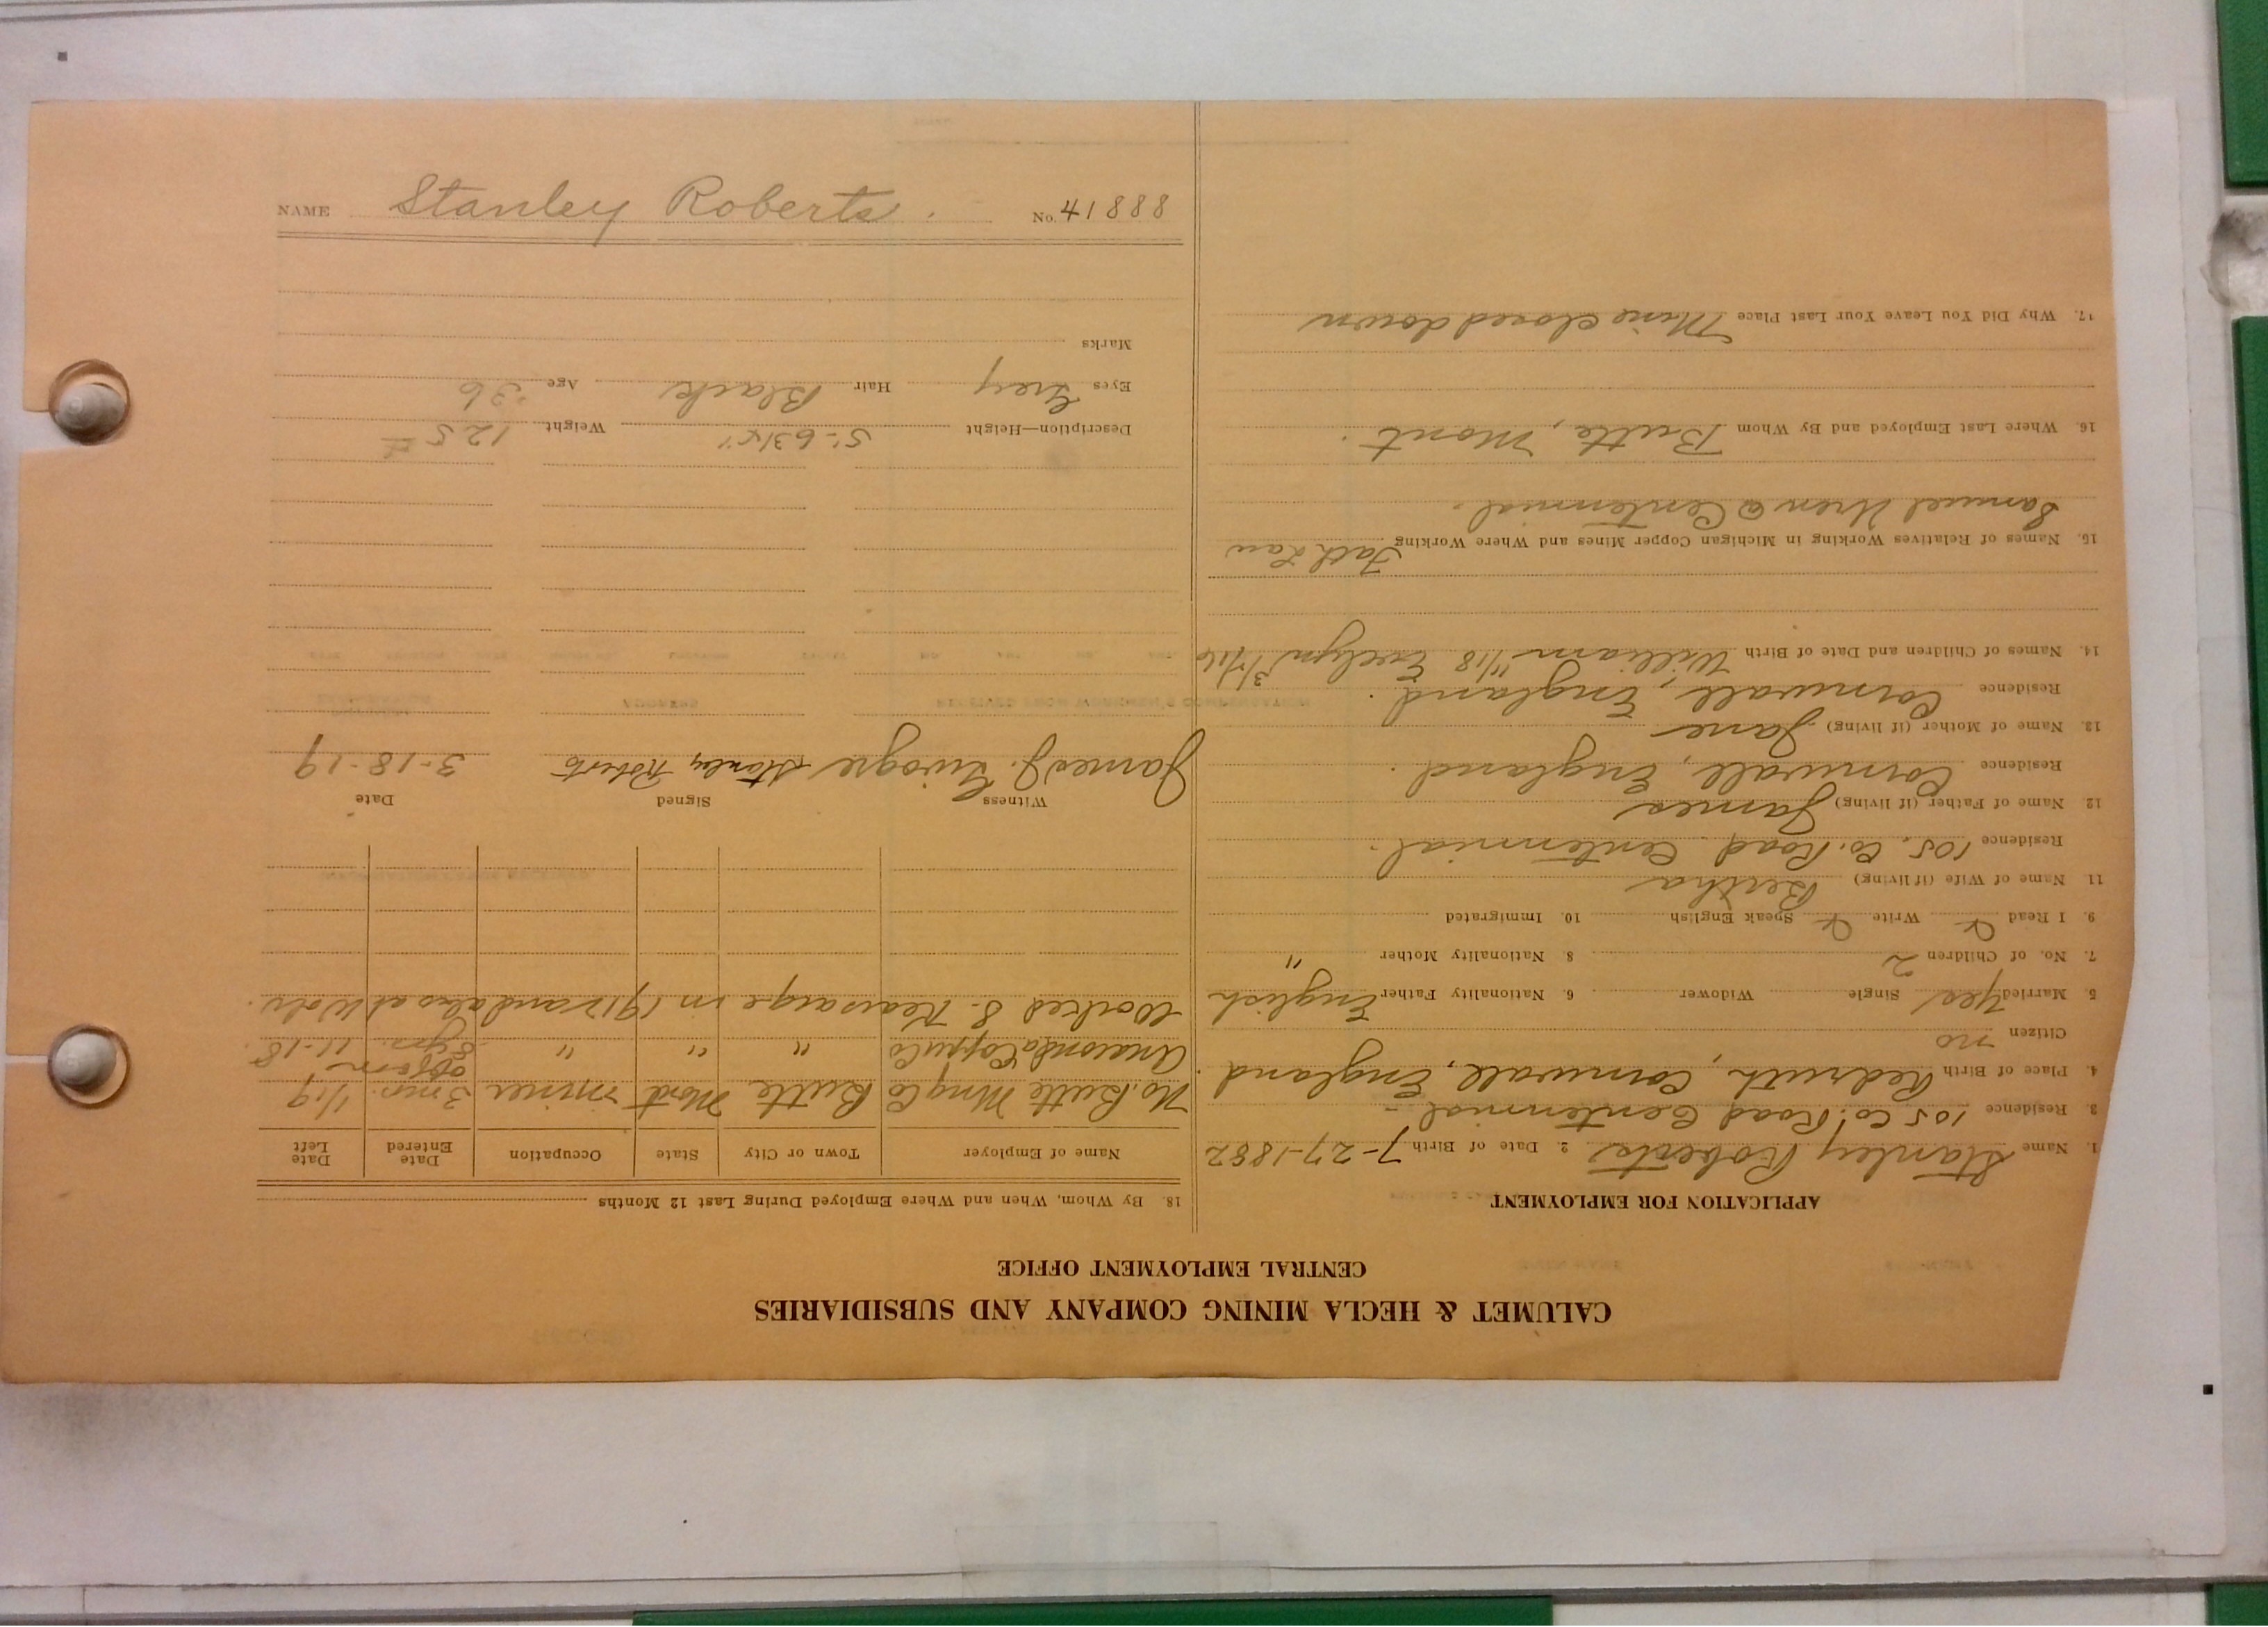 NAME Stanley Roberts. No. 41888
CALUMET & HECLA MINING COMPANY AND SUBSIDIARIES
CENTRAL EMPLOYMENT OFFICE
APPLICATION FOR EMPLOYMENT
1. Name Stanley Roberts 2. Date of Birth 7-27-1882
3. Residence 105 Co. Road Centennial
4. Place of Birth Redruth, Cornwall, England.
Citizen no
5. Married Yes Single Widower 6. Nationality Father English
7. No. of Children 2 8. Nationality Mother "
9. I Read Write Speak English 10. Immigrated
11. Name of Wife (if living) Bertha
Residence 105. Co. Road Centennial.
12. Name of Father (if living) James
Residence Cornwall, England.
13. Name of Mother (if living) Jane
Residence Cornwall, England.
14. Names of Children and Date of Birth William 11/18 Evelyn
15. Names of Relatives Working in Michigan Copper Mines and Where Working Fath Law
Samuel Uren @ Centennial.
16. Where Last Employed and By Whom Butte, Mont.
17. Why Did You Leave Your Last Place Mine closed down
18. By Whom, When and Where Employed During Last 12 Months
Name of Employer Town or City State Occupation Date Entered Date Left
No. Butte Mng Co Butte Mont miner 3 mos. 1/19
Anaconda Copper Co " " " 8 yrs. off & on 11-18.
Worked S. Kearsarge in 1912 and also at Wolv.
Witness Signed Date
James J. Stanley Roberts 3-18-19
Description—Height 5'-6 3/4" Weight 125 #
Eyes Grey Hair Black Age 36
Marks